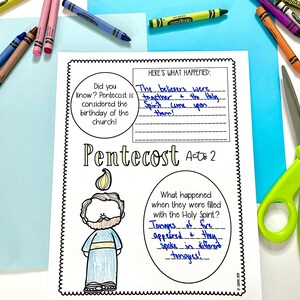 HERE'S WHAT HAPPENED:
The believers were
together + the Holy
Spirit came upon
them!
Did you
know? Pentecost is
considered the
birthday of the
church!
Pentecost Acts 2
What happened
when they were filled
with the Holy Spirit?
Tongues of fire
appeared & they
spoke in different
tongues!